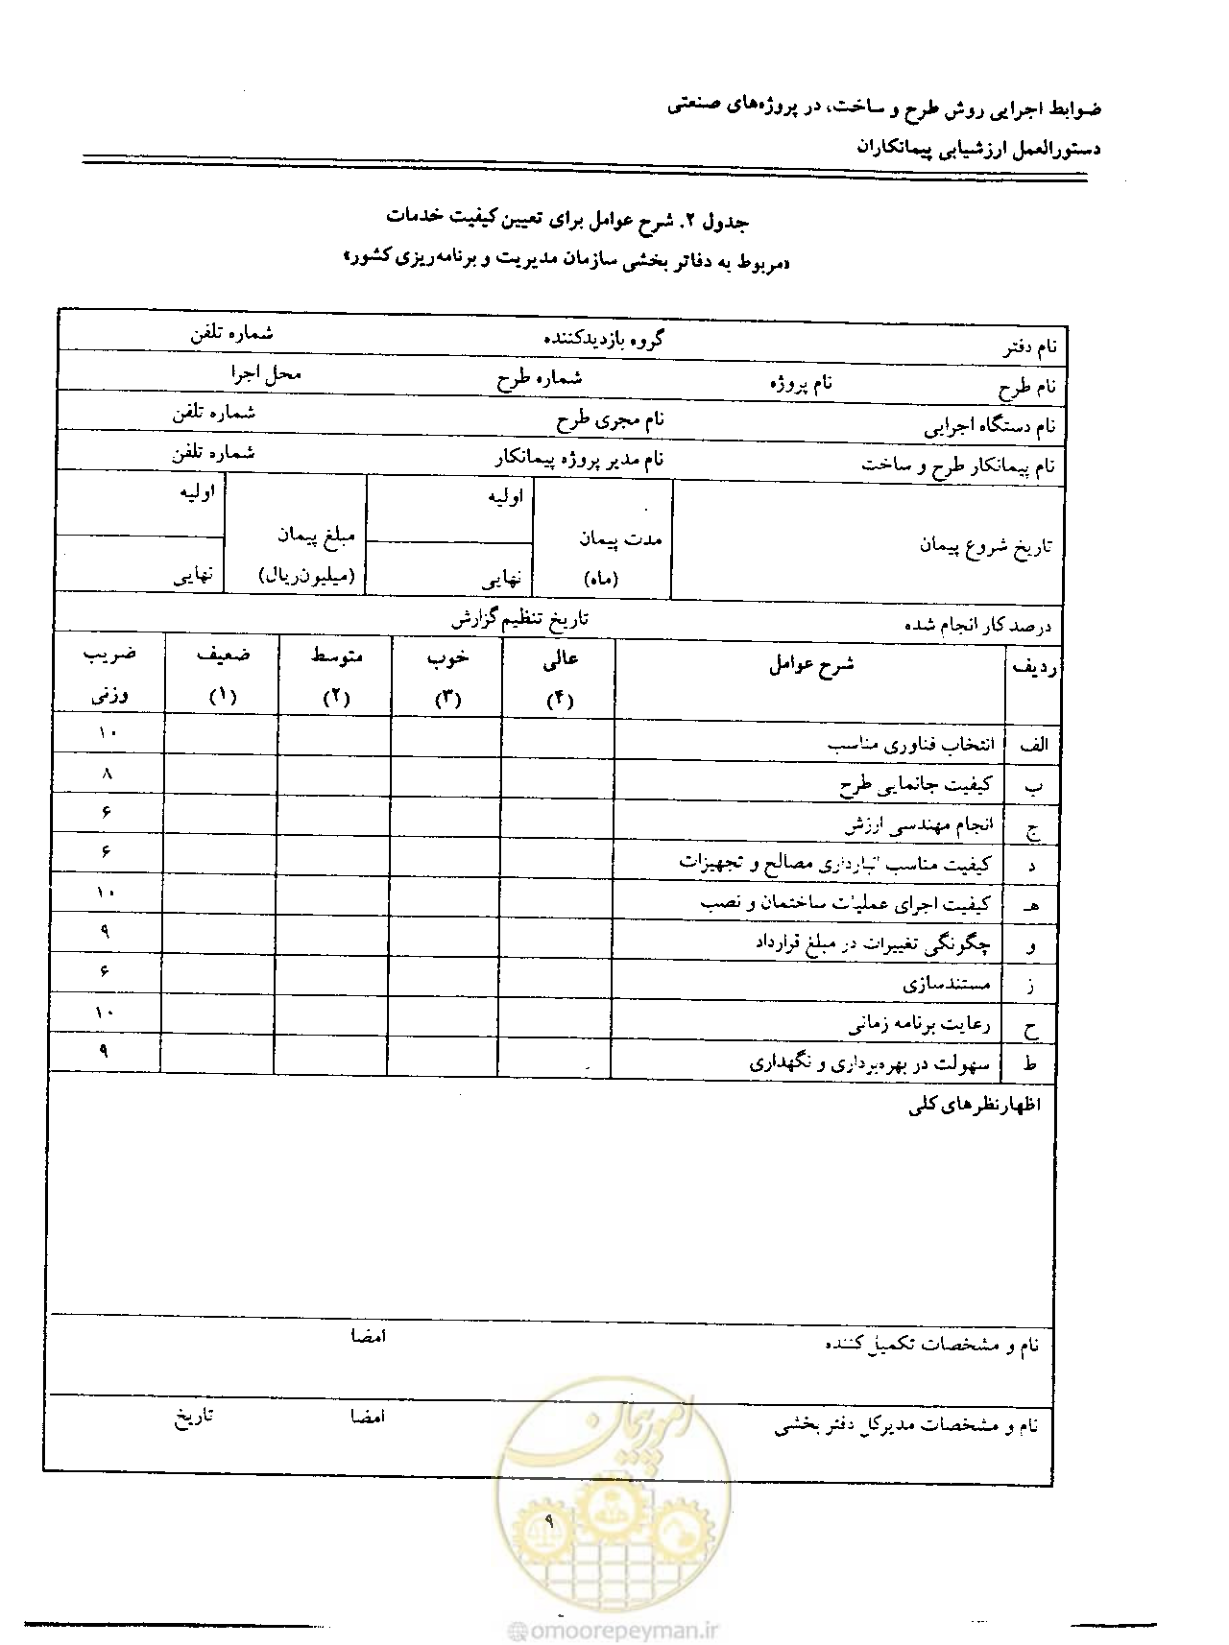 ضوابط اجرایی روش طرح و ساخت، در پروژه‌های صنعتی
دستورالعمل ارزشیابی پیمانکاران
جدول ۲. شرح عوامل برای تعیین کیفیت خدمات
«مربوط به دفاتر بخشی سازمان مدیریت و برنامه‌ریزی کشور»
نام دفتر گروه بازدیدکننده شماره تلفن
نام طرح نام پروژه شماره طرح محل اجرا
نام دستگاه اجرایی نام مجری طرح شماره تلفن
نام پیمانکار طرح و ساخت نام مدیر پروژه پیمانکار شماره تلفن
اولیه اولیه
تاریخ شروع پیمان مدت پیمان مبلغ پیمان
(ماه) نهایی (میلیون‌ریال) نهایی
درصد کار انجام شده تاریخ تنظیم گزارش
ردیف شرح عوامل عالی خوب متوسط ضعیف ضریب
(۴) (۳) (۲) (۱) وزنی
الف انتخاب فناوری مناسب ۱۰
ب کیفیت جانمایی طرح ۸
ج انجام مهندسی ارزش ۶
د کیفیت مناسب انبارداری مصالح و تجهیزات ۶
هـ کیفیت اجرای عملیات ساختمان و نصب ۱۰
و چگونگی تغییرات در مبلغ قرارداد ۹
ز مستندسازی ۶
ح رعایت برنامه زمانی ۱۰
ط سهولت در بهره‌برداری و نگهداری ۹
اظهارنظرهای کلی
نام و مشخصات تکمیل کننده امضا
نام و مشخصات مدیرکل دفتر بخشی امضا تاریخ
امور پیمان
۹
@omoorepeyman.ir